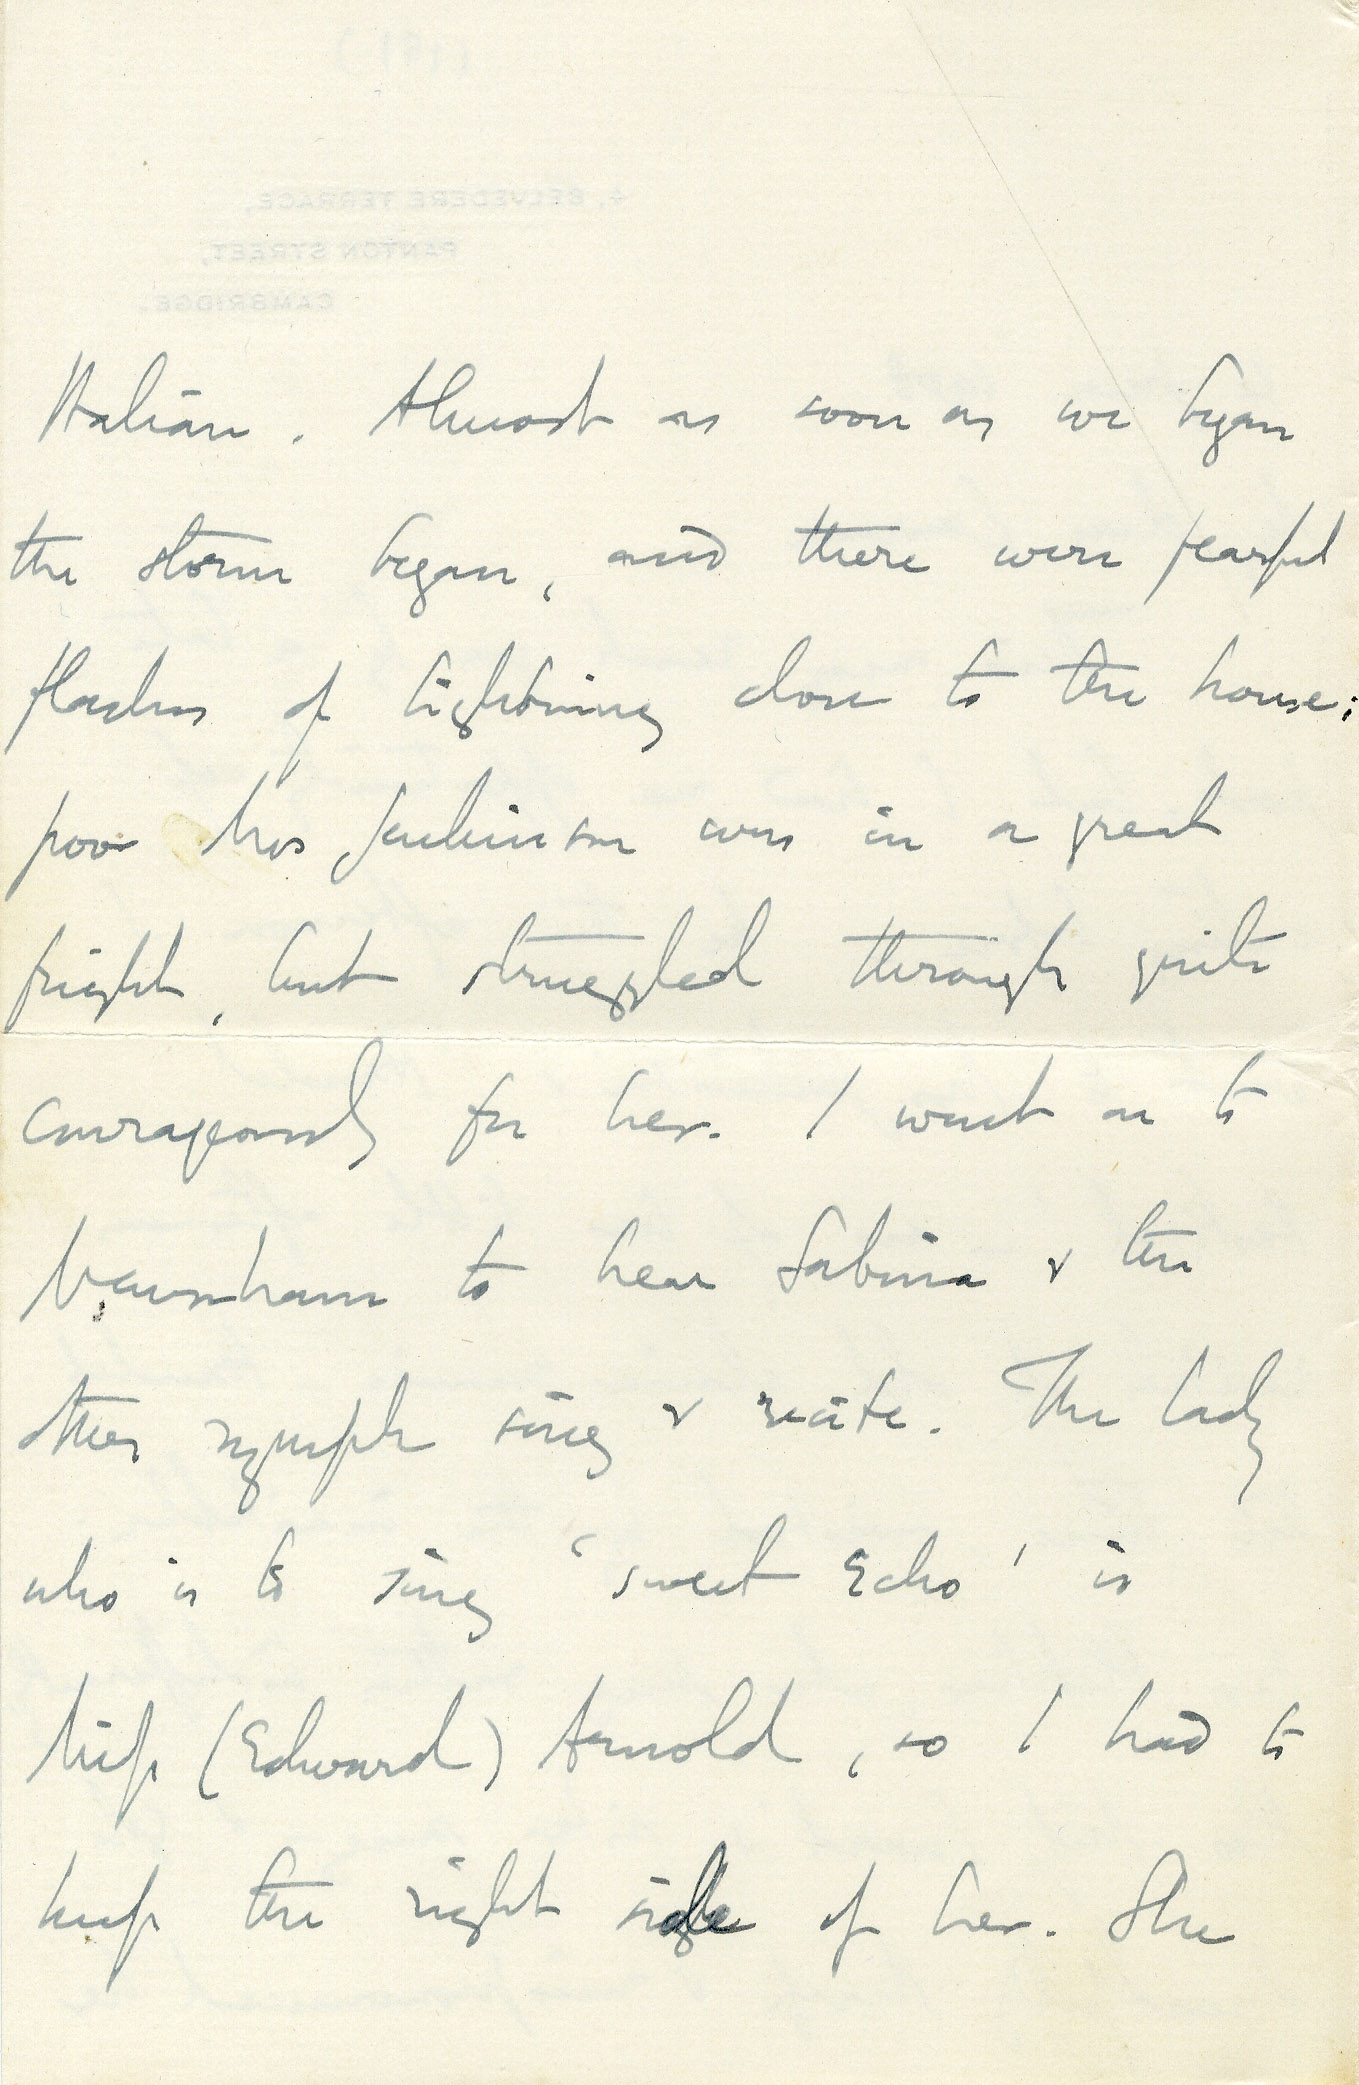 4, BELVEDERE TERRACE,
PANTON STREET,
CAMBRIDGE.
Italian. Almost as soon as we began
the storm began, and there were fearful
flashes of lightning close to the house;
poor Mrs Jenkinson was in a great
fright, but struggled through quite
courageously for her. I went on to
Newnham to hear Sabrina & the
other nymph sing & recite. The lady
who is to sing 'sweet Echo' is
Miss (Edward) Arnold, so I had to
keep the right side of her. She